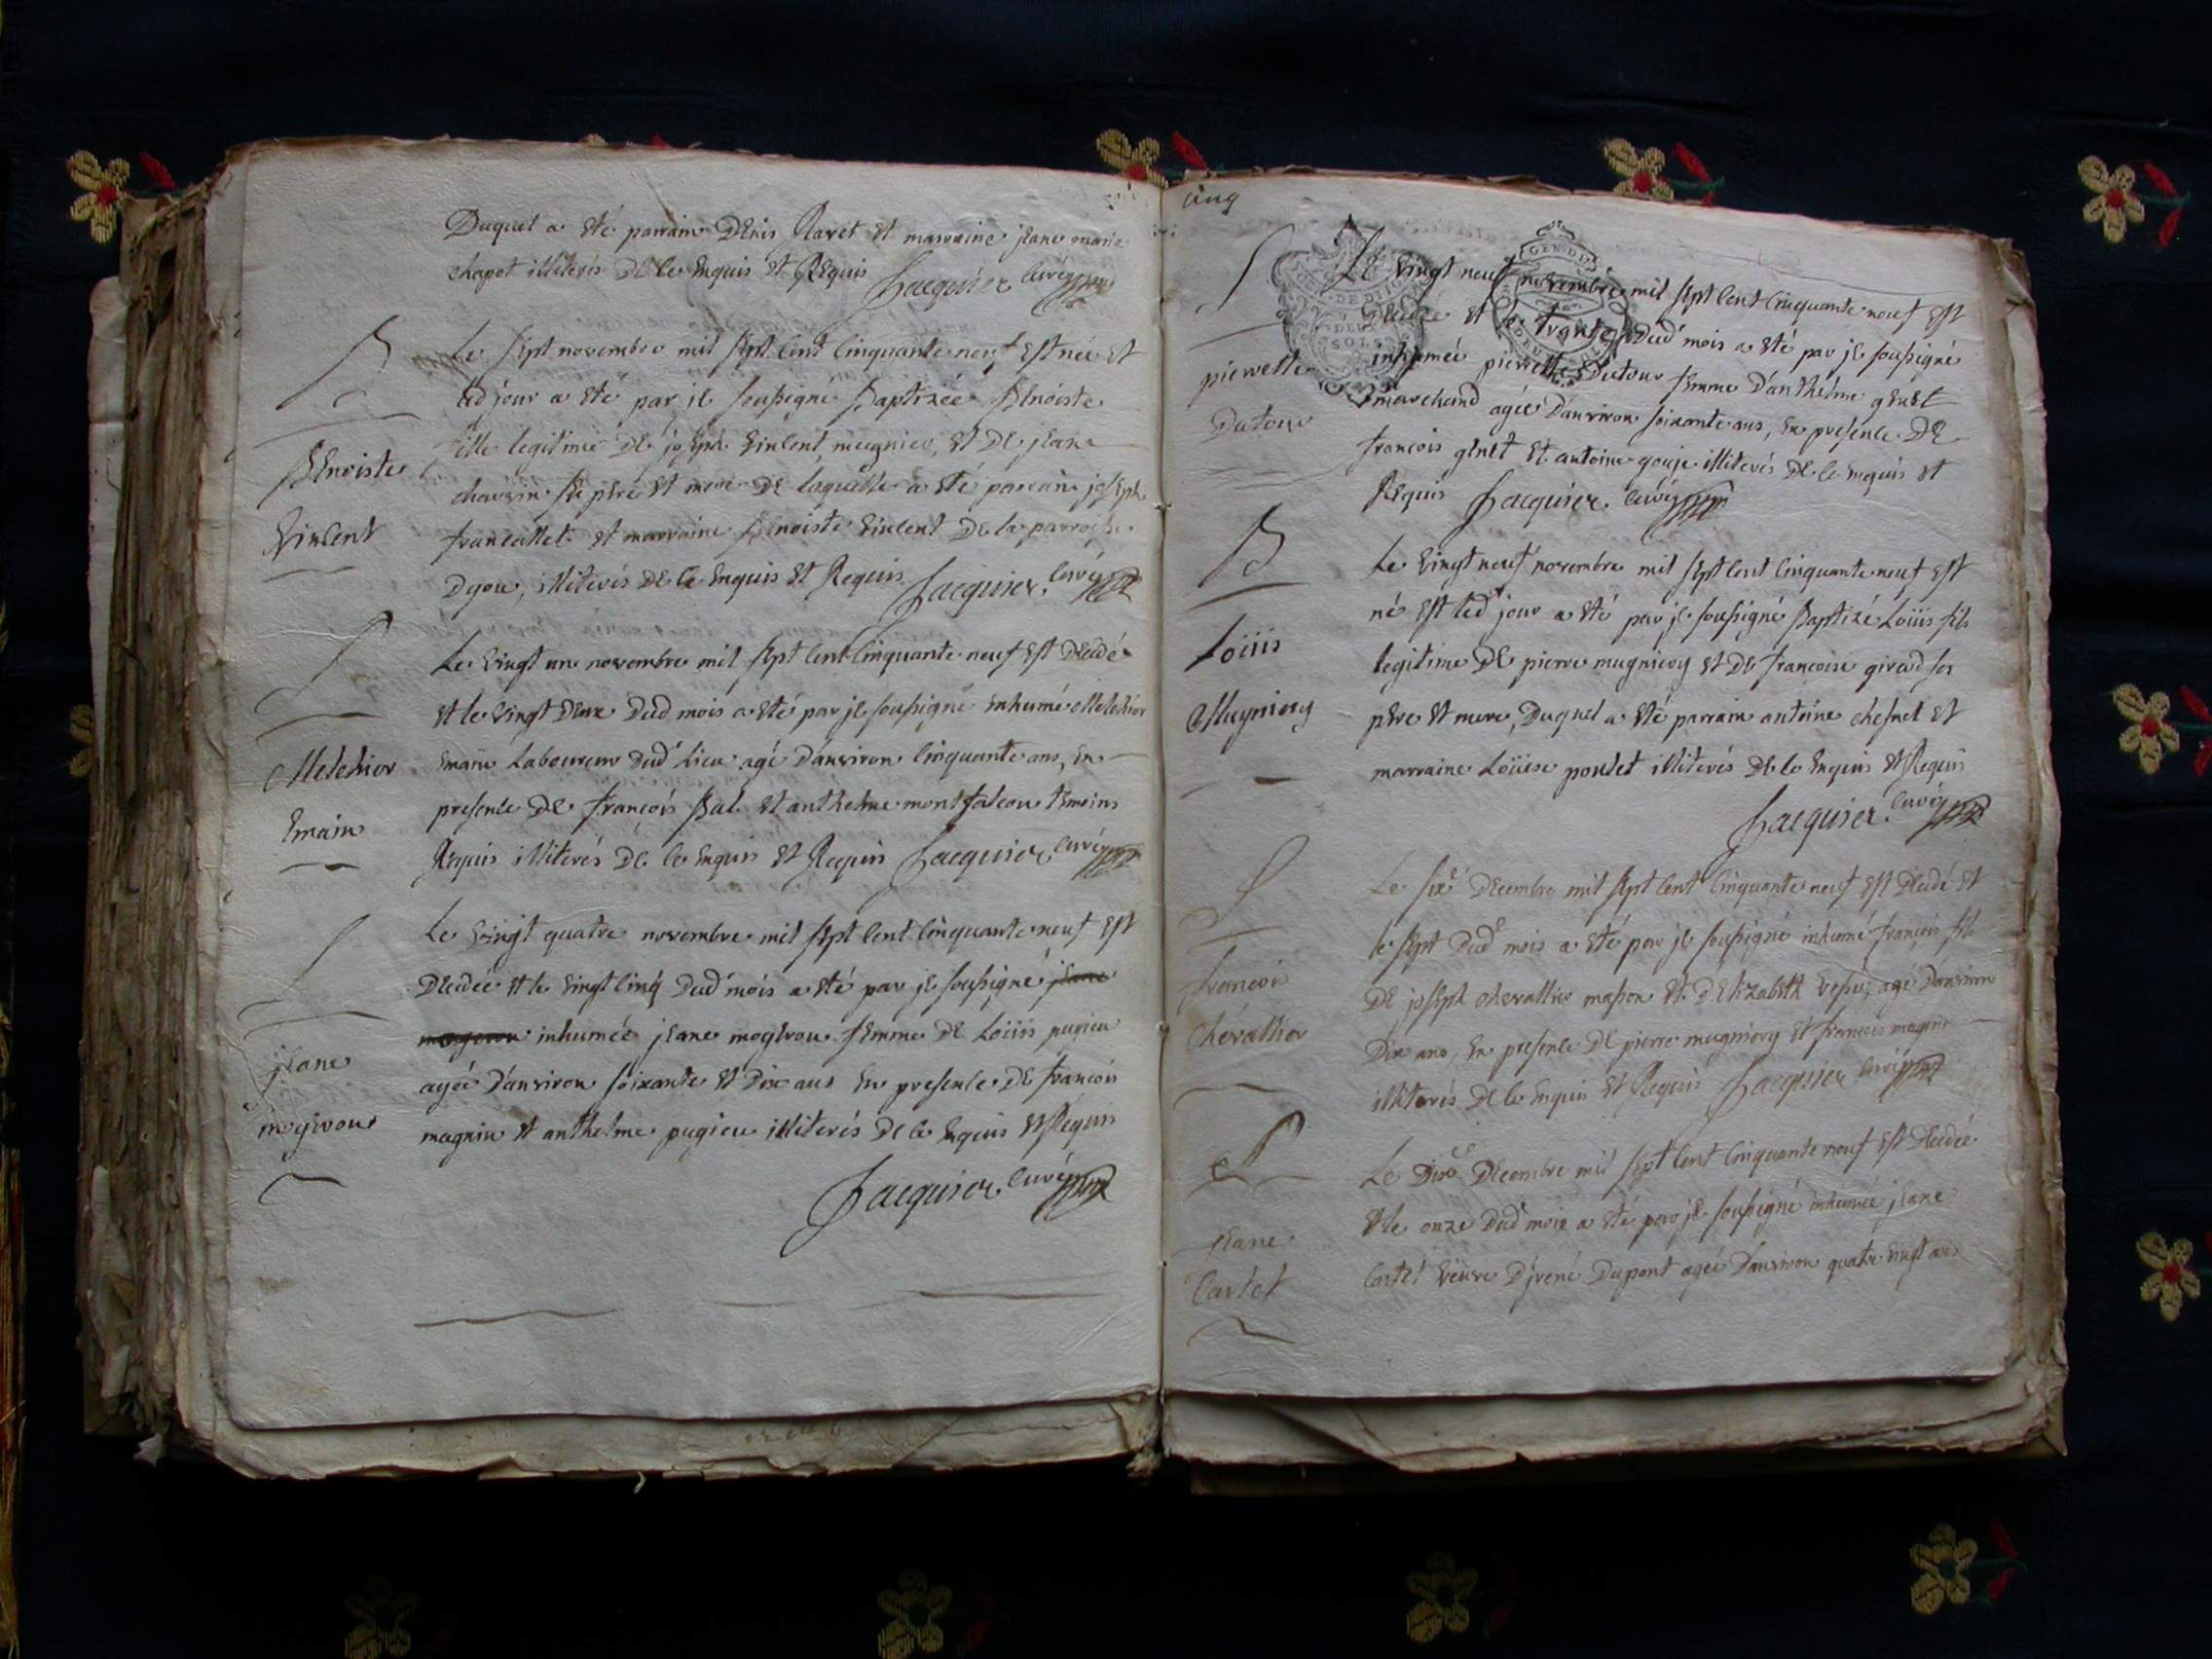 Duquel a été parrain Denis Ravet et marraine jeane marie
chapot illiterés de ce enquis et Requis Jacquier curé
B
Benoiste
Vincent
Le sept novembre mil sept cent cinquante neuf est née et
led jour a été par je soussigné Baptizée Benoiste
fille legitime de joseph vincent meugnier, et de jeane
chavrin ses pere et mere de laquelle a été parrain joseph
francallet et marraine Benoiste vincent de la parroisse
Dyon, illiterés de ce enquis et Requis Jacquier curé
S
Melchior
Emain
Le vingt un novembre mil sept cent cinquante neuf est decedé
et le vingt deux dud mois a été par je soussigné inhumé Melchior
Emain Laboureur dud Lieu agé d'anviron cinquante ans, en
presence de françois Bal et anthelme montfalcon temoins
Requis illiterés de ce enquis et Requis Jacquier curé
S
jeane
mogirou
Le vingt quatre novembre mil sept cent cinquante neuf est
decedée et le vingt cinq dud mois a été par je soussigné jeane
inhumée jeane mogerou femme de Loüis pugieu
agée d'anviron soixante et dix ans en presence de francois
magnin et anthelme pugieu illiterés de ce enquis et Requis
Jacquier curé
cinq
GEN DE DIJON
DEUX
SOLS
S
pierrette
Dutour
Le vingt neuf novembre mil sept cent cinquante neuf est
decedée et le trente dud mois a été par je soussigné
inhumée pierrette Dutour femme d'anthelme genet
marchand agée d'anviron soixante ans, en presence de
francois genet et antoine gouje illiterés de ce enquis et
Requis Jacquier curé
B
Loüis
Mugniery
Le vingt neuf novembre mil sept cent cinquante neuf est
né est led jour a été par je soussigné Baptizé Loüis fils
legitime de pierre mugniery et de francoise girod ses
pere et mere, Duquel a été parrain antoine chesnel et
marraine Loüise pontet illiterés de ce enquis et Requis
Jacquier curé
S
francois
chevallier
Le sixe decembre mil sept cent cinquante neuf est decedé et
le sept dud mois a été par je soussigné inhumé francois fils
de joseph chevallier masson et d'Elizabeth agé d'anviron
dix ans, en presence de pierre mugniery et francois magnin
illiterés de ce enquis et Requis Jacquier curé
S
jeane
Cartet
Le dixe decembre mil sept cent cinquante neuf est decedée
et le onze dud mois a été par je soussigné inhumée jeane
Cartet veuve d'jrené Dupont agée d'anviron quatre vingt ans